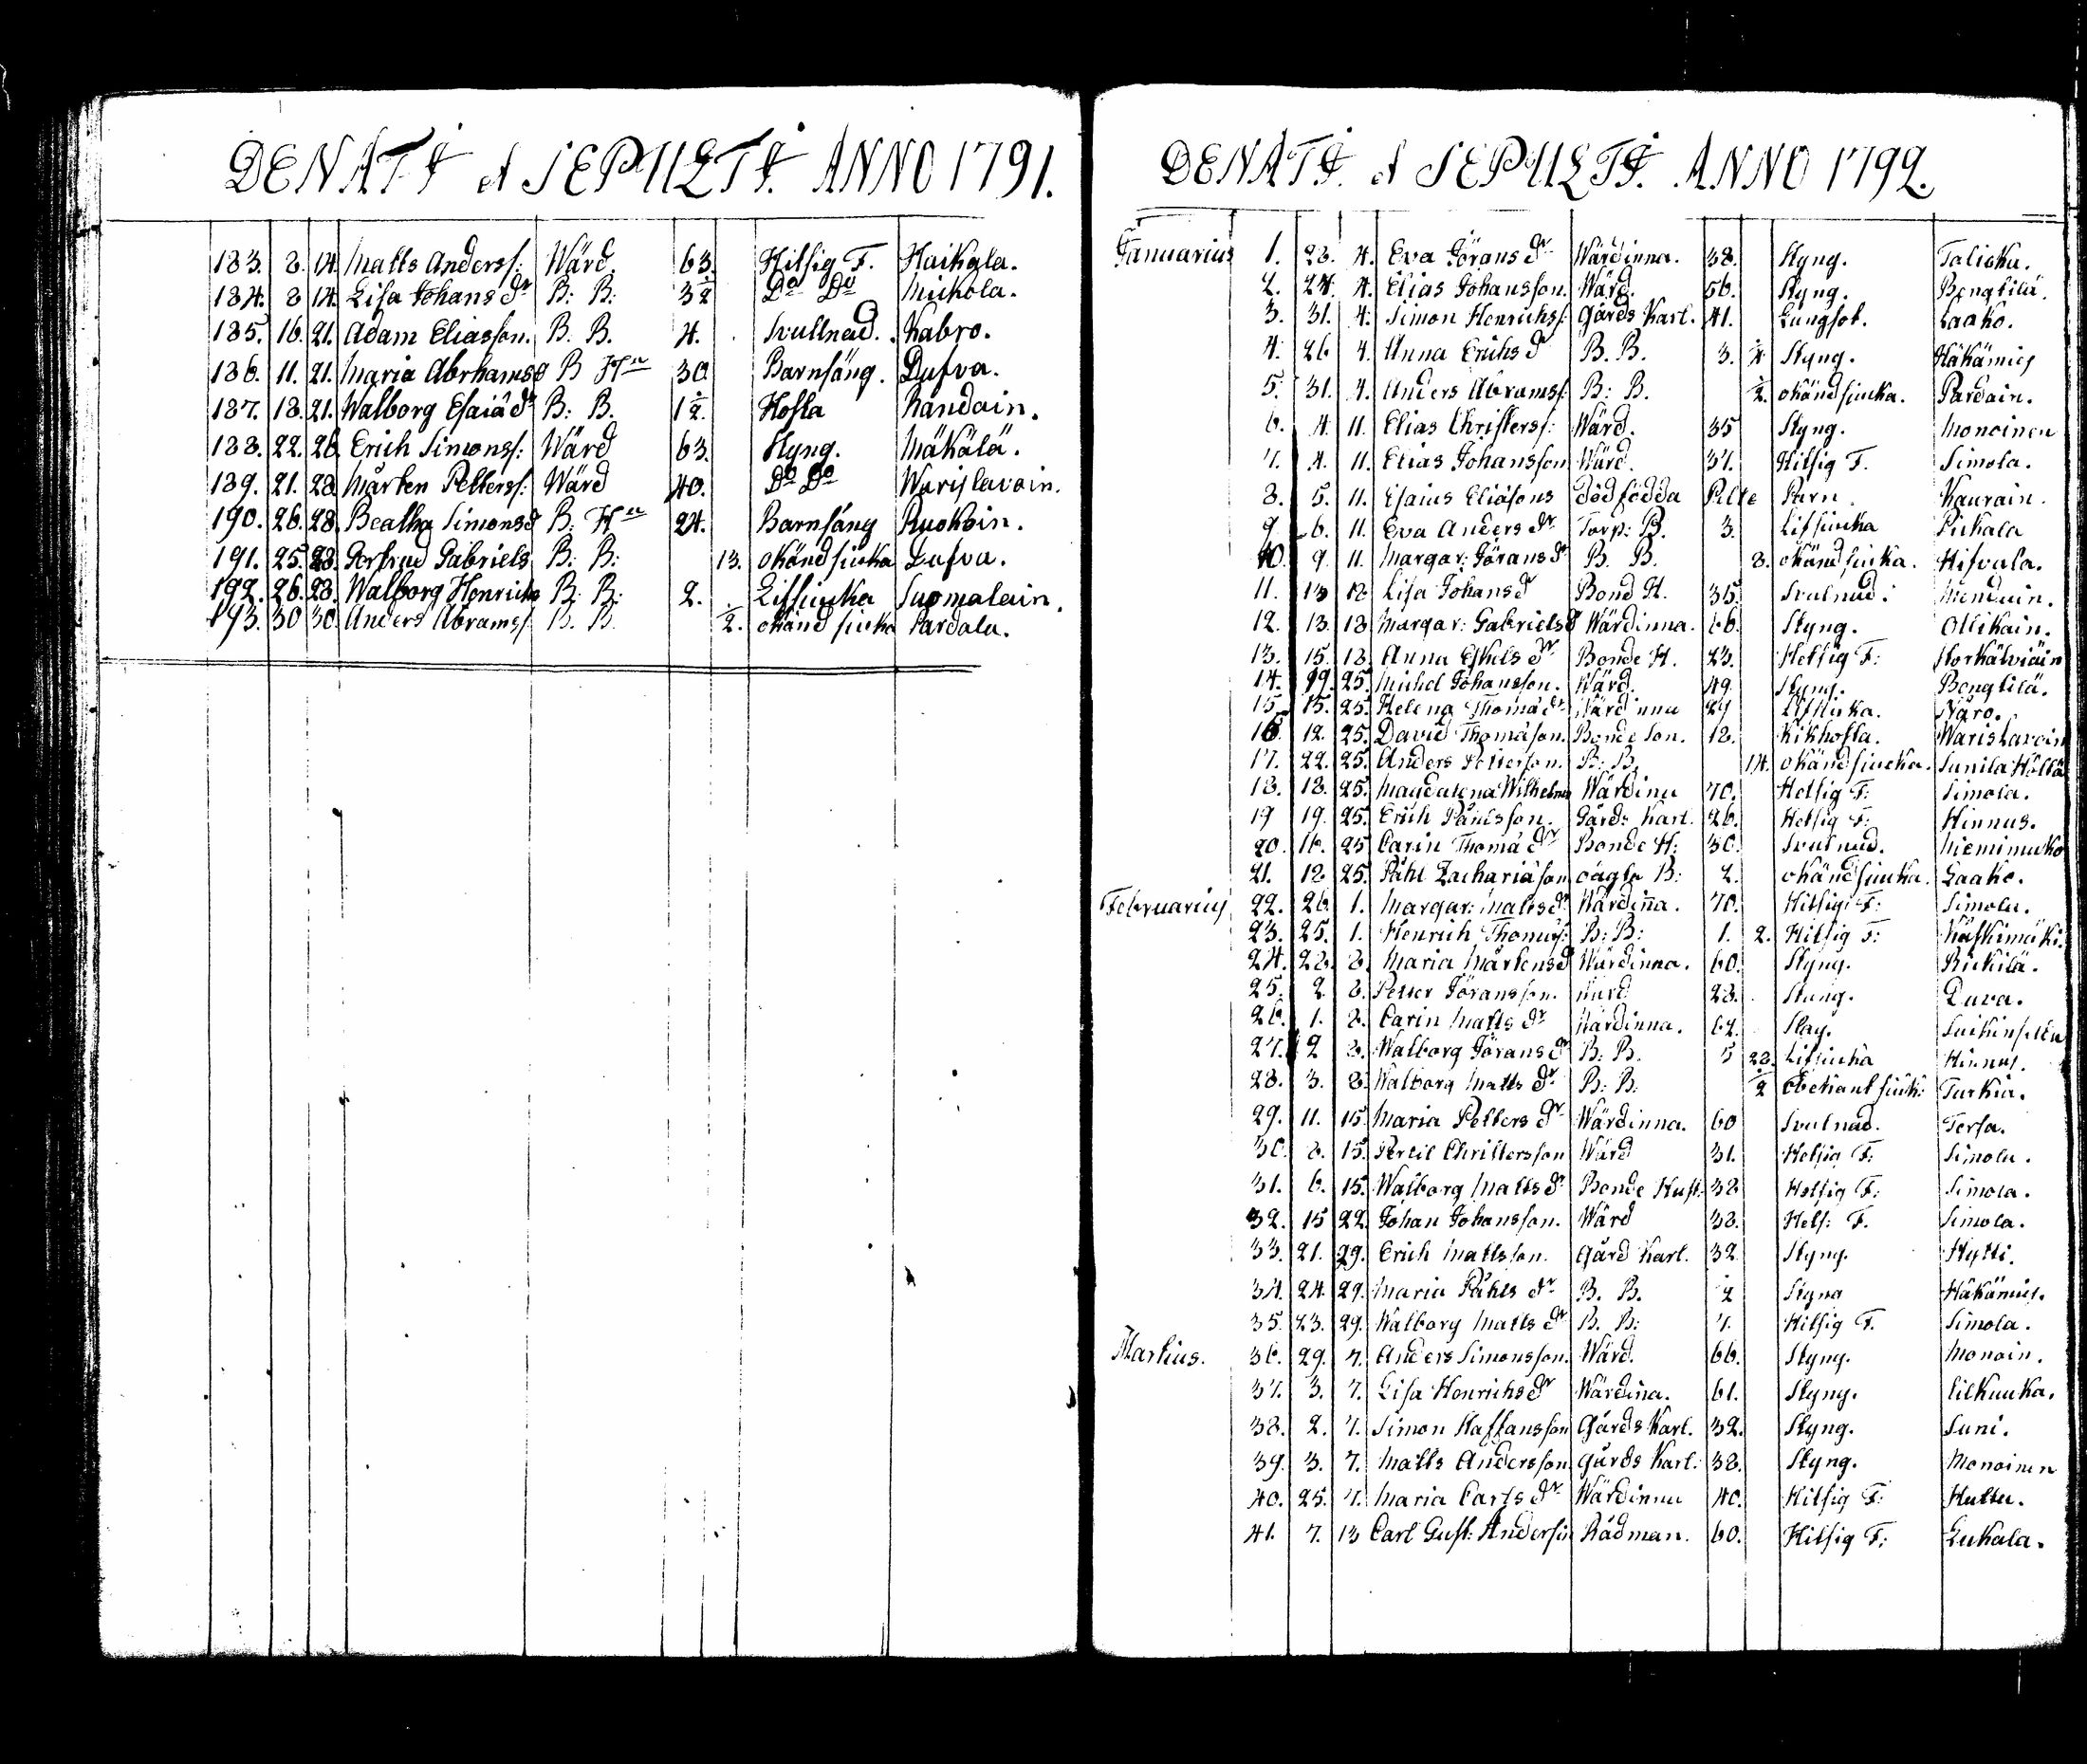 DENATI et SEPULTI. ANNO 1791.
183. 8. 14. Matts Anderss: Wärd. 63. Hitsig F. Haikala.
184. 8 14. Lisa Johans dr B: B: 3 1/2 Do Do Mickola.
185. 16. 21. Adam Eliasson. B. B. 4. Svullnad. Kabro.
186. 11. 21. Maria Abrhams d B Hu 30 Barnsäng. Dufva.
187. 18. 21. Walborg Esaiæ dr B: B. 1 1/2 Hosta Kandain.
188. 22. 28. Erich Simonss: Wärd 63. Styng. Mäkälä.
189. 21. 28 Mårten Petterss: Wärd 40. Do Do Warislavain.
190. 26. 28. Beatha Simons d B: Hu 24. Barnsäng Ruokoin.
191. 25. 28. Gertrud Gabriels B: B: 13. okänd siuka Dufva.
192. 26. 28. Walborg Henrichs B: B: 2. Lifsiuka Suomalain.
193. 30 30. Anders Abramss B. B. 1/2. okänd siuka Pardala.
DENATI. et SEPULTI. ANNO 1792.
Januarius 1. 28. 4. Eva Jörans dr Wärdinna. 38. Styng. Talioka.
2. 24. 4. Elias Johansson. Wärd. 56. Styng. Bengtilä.
3. 31. 4. Simon Henrichss: Gårds Karl. 41. Lungsot. Laako.
4. 26 4. Anna Erichs d B. B. 3. 1/4 Styng. Häkämies
5. 31. 4. Anders Abramss: B: B. 1/2. okänd siucka. Pardain.
6. 4. 11. Elias Christerss: Wärd. 35 Styng. Monoinen
7. 4. 11. Elias Johansson Wärd. 37. Hitsig F. Simola.
8. 5. 11. Esaias Eliasons dödfödda Pilte Barn. Kaurain.
9 6. 11. Eva Anders dr Torp: B. 3. Lifsiucka Pukala
10. 9 11. Margar: Jörans dr B. B. 8. okänd siucka. Hifvala.
11. 13 18 Lisa Johans d Bond H. 35. Svulnad. Menduin.
12. 13. 18 Margar: Gabriels d Wärdinna. 66. Styng. Ollikain.
13. 15. 18. Anna Eskels dr Bonde H. 23. Hetsig F: Horkälviäin
14. 19. 25. Michel Johansson. Wärd. 49. Styng. Bengtilä.
15. 15. 25. Helena Thomæ dr Wärdinna 29 Lifsiuka. Näro.
16. 12. 25. David Thomason. Bonde Son. 18. Kikhosta. Warislavoin
17. 22. 25. Anders Petterson. B: B. 14. okänd siucka. Sunila Hålla
18. 18. 25. Magdalena Wilhelms Wärdina 70. Hetsig F: Simola.
19 19. 25. Erich Pålsson. Gårds Karl. 26. Hetsig F: Hinnus.
20. 16. 25 Carin Thomæ dr Bonde H: 30. Svulnad. Niemimuko
21. 12 25. Påhl Zachariason oägta B: 2. okänd siucka. Laako.
Februarius 22. 26. 1. Margar: Matts dr Wärdinna. 70. Hitsig F: Simola.
23. 25. 1. Henrich Thomæs: B: B: 1. 2. Hitsig F:
24. 28. 8. Maria Mårtens d Wärdinna. 60. Styng. Rickilä.
25. 2. 8. Petter Jöransson. Wärd 28. Styng. Duva.
26. 1. 8. Carin Matts dr Wärdinna. 67. Slag.
27. 2 8. Walborg Jörans dr B: B. 5 28. Lifsiucka Hinnus.
28. 3. 8. Walborg Matts dr B: B. 1/2 obekant siuk: Turkia.
29. 11. 15. Maria Petters dr Wärdinna. 60 Svulnad. Tersa.
30. 8. 15. Bertil Christersson Wärd 31. Hetsig F: Simola.
31. 6. 15. Walborg Matts dr Bonde Hust: 38 Hetsig F: Simola.
32. 15 22. Johan Johansson. Wärd 38. Hets: F. Simola.
33. 21. 29. Erich Mattsson. Gård Karl. 32 Styng. Hytti.
34. 24. 29. Maria Påhls dr B. B. 1/2 Styng Häkämies.
35. 23. 29. Walborg Matts dr B. B: 7. Hitsig F. Simola.
Martius. 36. 29. 7. Anders Simonsson. Wärd. 66. Styng. Monoin.
37. 3. 7. Lisa Henrichs dr Wärdina. 61. Styng. Lilkuuka.
38. 2. 7. Simon Staffansson Gårds Karl. 32. Styng. Suni.
39. 3. 7. Matts Andersson Gårds Karl: 38. Styng. Monoinen
40. 25. 7. Maria Carls dr Wärdinna 40. Hitsig F: Huttu.
41. 7. 13 Carl Gust: Andersin Rådman. 60. Hitsig F: Lukala.